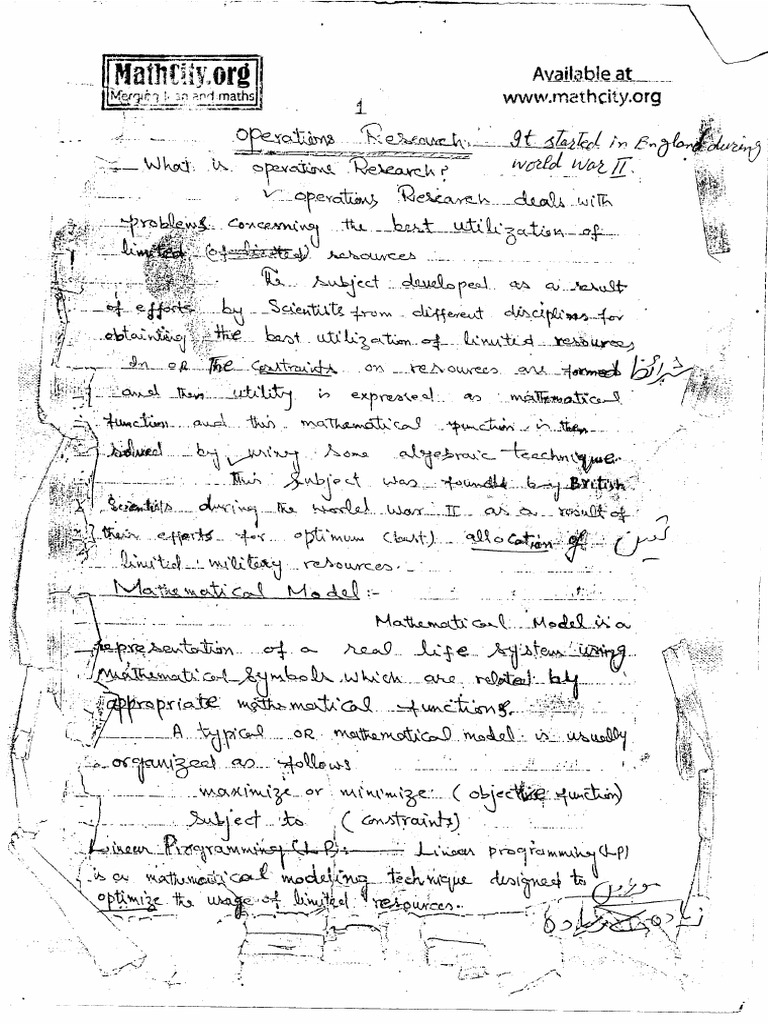 MathCity.org
Merging man and maths
Available at
www.mathcity.org
1
Operations Research. It started in England during
world war II.
What is operations Research?
operations Research deals with
problems concerning the best utilization of
limited resources
The subject developed as a result
of efforts by Scientists from different disciplines for
obtainting the best utilization of limited resources
In OR The constraints on resources are formed شرائط
and then utility is expressed as mathematical
function and this mathematical function is then
solved by using some algebraic teechnique.
This subject was founded by British
Scientists during the world war II as a result of
their efforts for optimum (best) allocation of
limited military resources.
Mathematical Model:-
Mathematical Model is a
representation of a real life system using
Mathematical Symbols which are related by
appropriate mathematical functions.
A typical OR mathematical model is usually
organized as follows
maximize or minimize (objective function)
Subject to (constraints)
Linear Programming (LP):- Linear programming (LP)
is a mathematical modeling technique designed to
optimize the usage of limited resources.
زیادہ